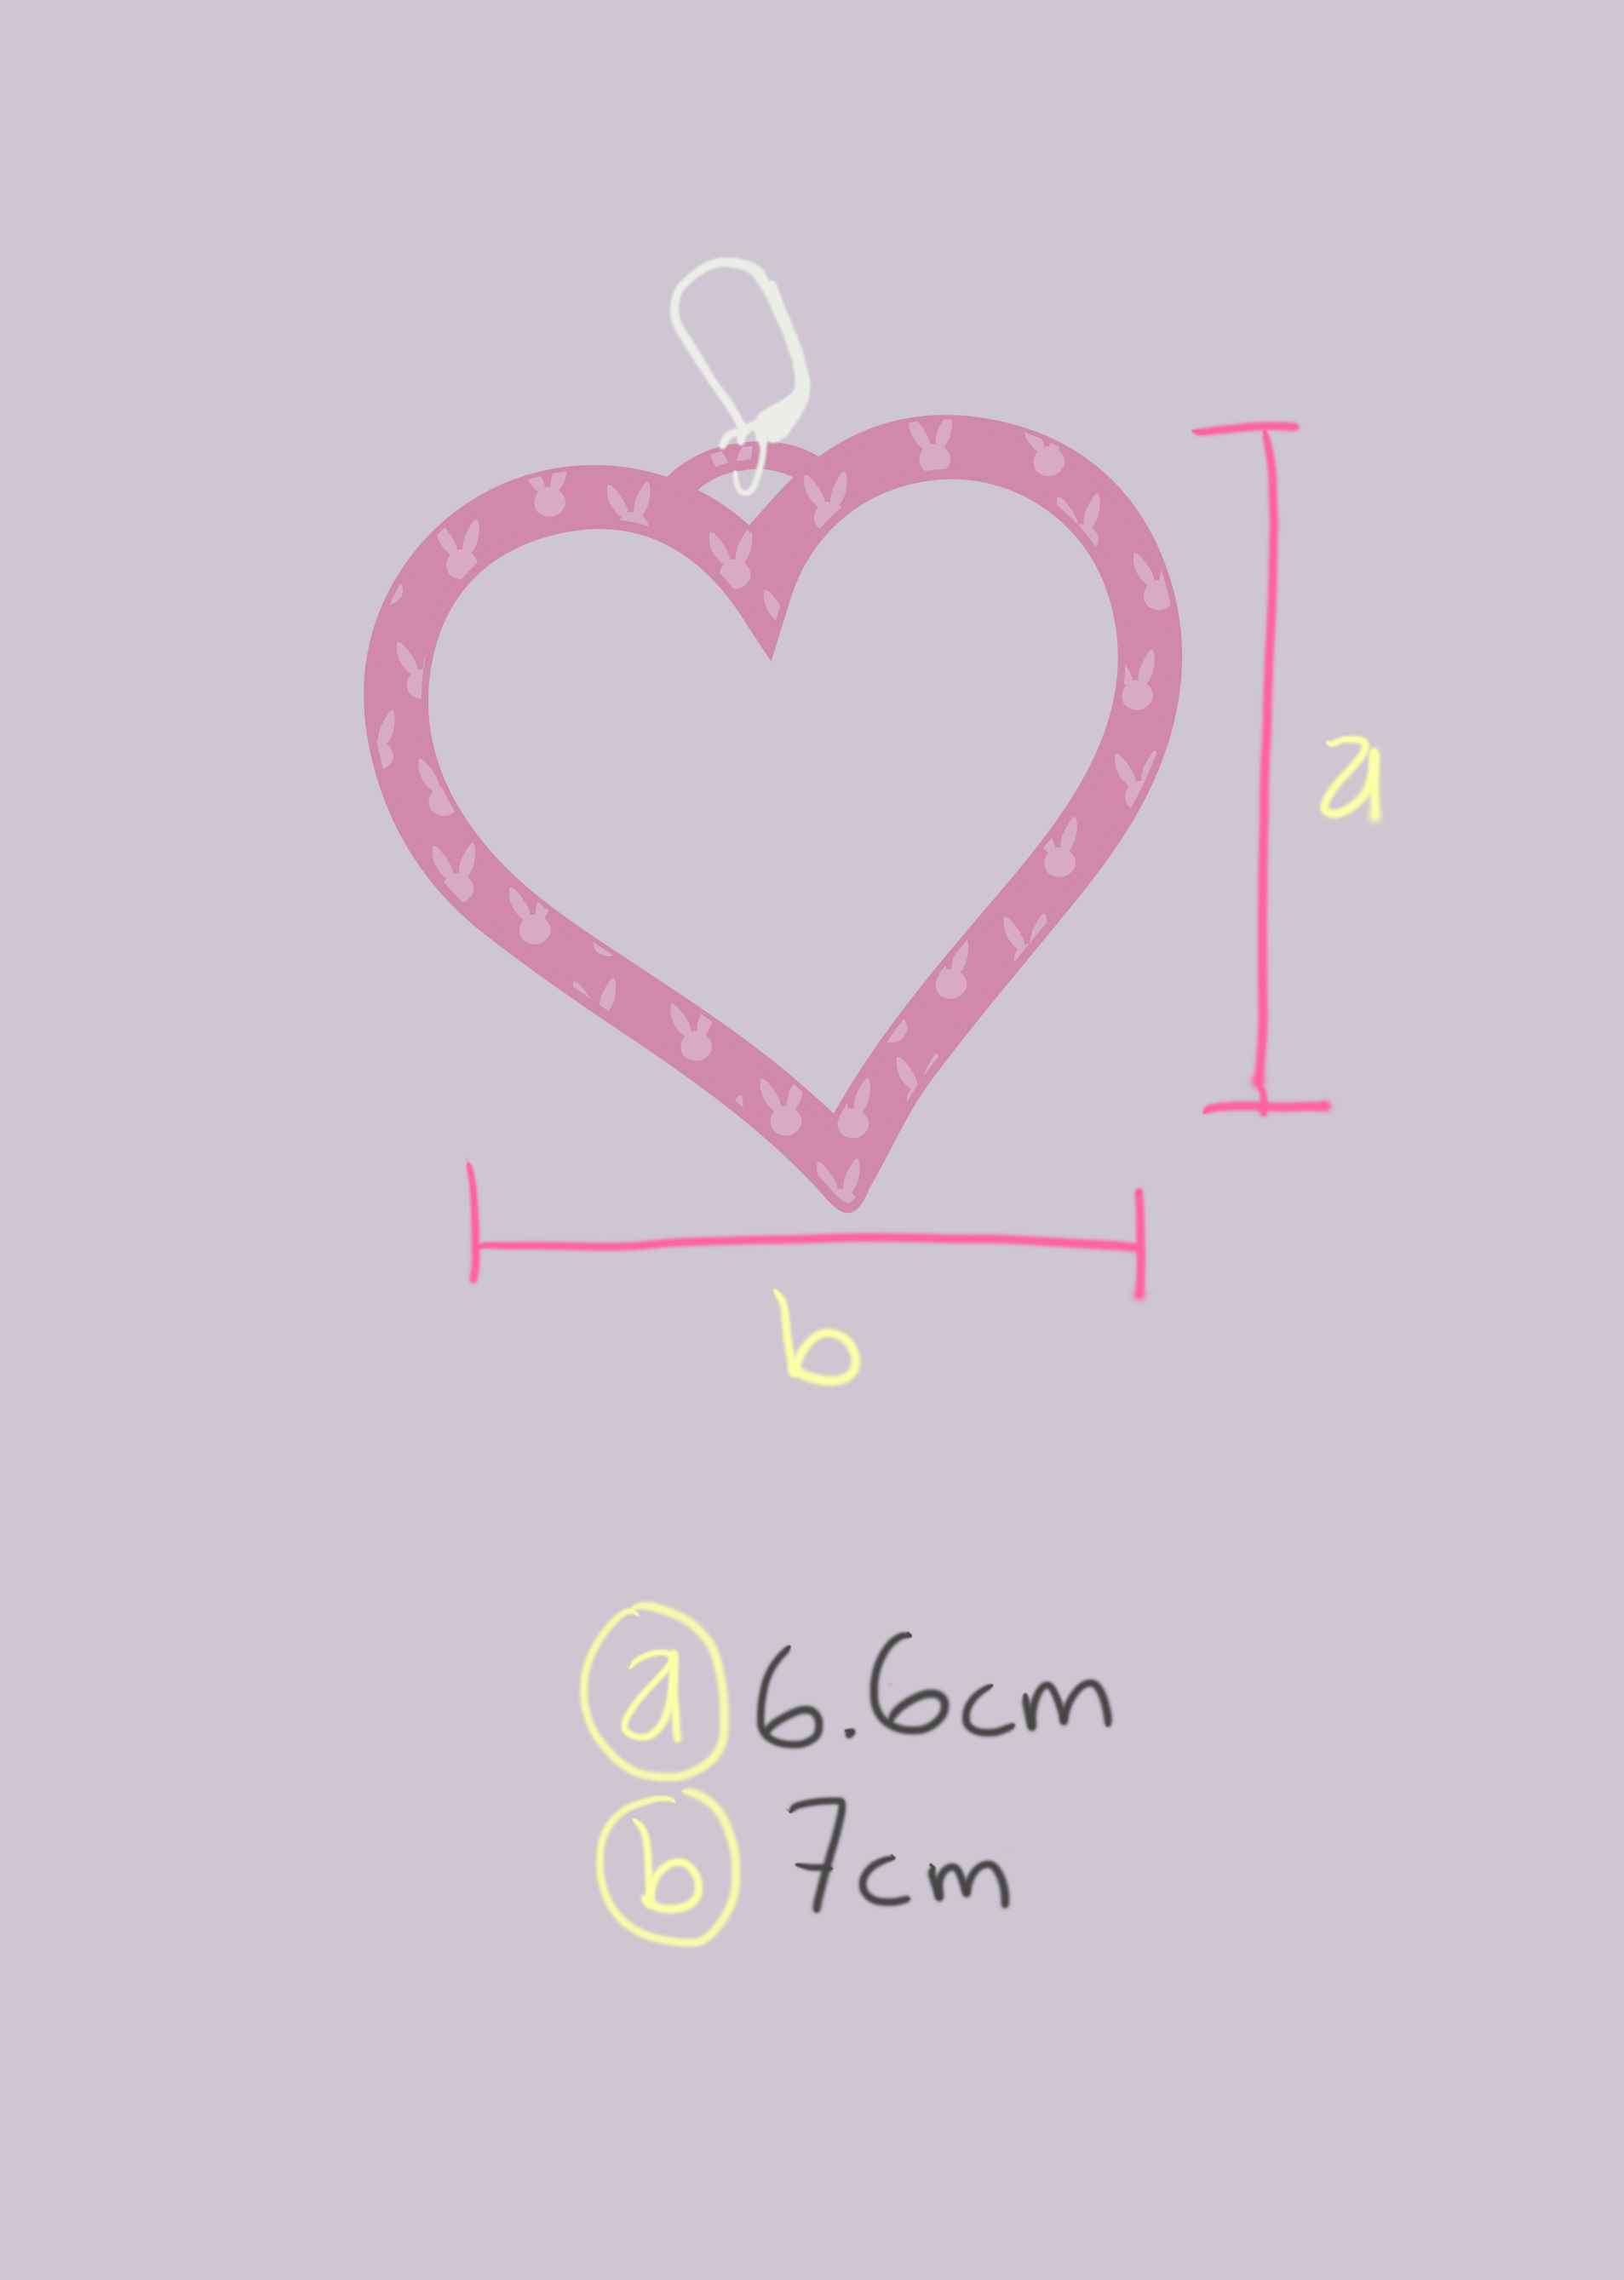 a
b
a 6.6cm
b 7cm